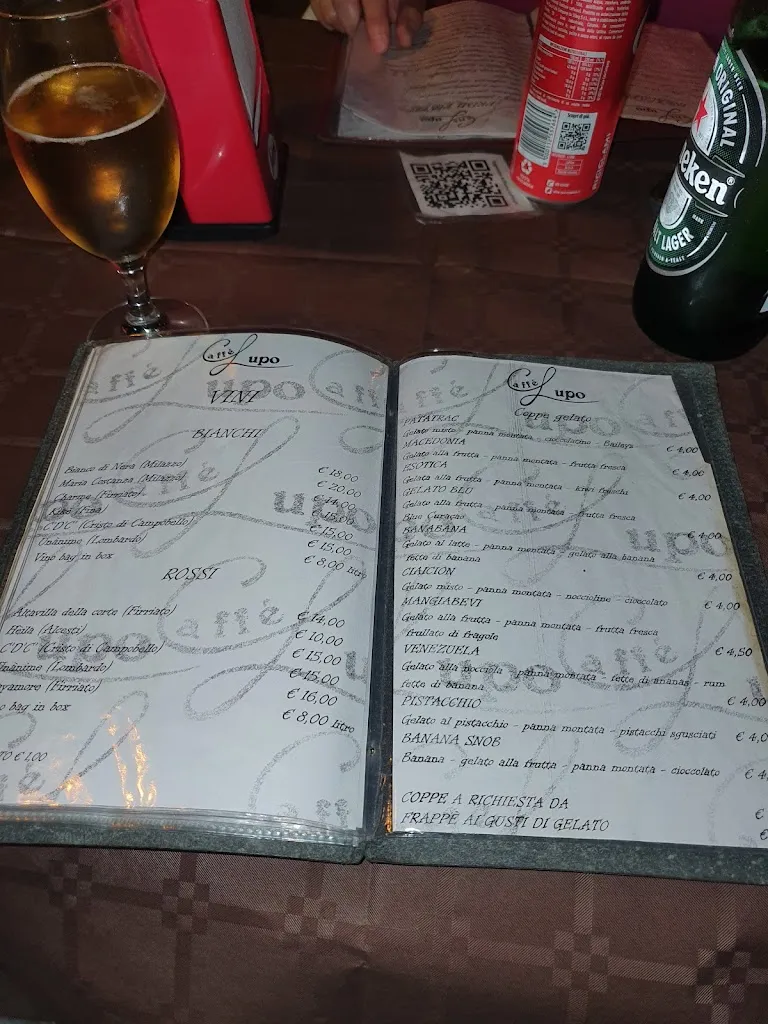 ORIGINAL
Heineken®
LAGER
Scopri di più
Caffè Lupo
VINI
BIANCHI
Bianco di Nera (Milazzo) € 18,00
Maria Costanza (Milazzo) € 20,00
Charme (Firriato) € 14,00
Kikè (Fina) € 15,00
C'D'C' (Cristo di Campobello) € 15,00
Unànime (Lombardo) € 15,00
Vino bag in box € 8,00 litro
ROSSI
Altavilla della corte (Firriato) € 14,00
Heila (Alcesti) € 10,00
C'D'C' (Cristo di Campobello) € 15,00
Unànime (Lombardo) € 15,00
yamore (Firriato) € 16,00
o bag in box € 8,00 litro
TO € 1.00
Caffè Lupo
Coppe gelato
PATATRAC
Gelato misto - panna montata - cioccolatine - Baileys € 4,00
MACEDONIA
Gelato alla frutta - panna montata - frutta fresca € 4,00
ESOTICA
Gelato alla frutta - panna montata - kiwi freschi € 4,00
GELATO BLU
Gelato alla frutta - panna montata - frutta fresca
Blue Curaçao € 4,00
BANABANA
Gelato al latte - panna montata - gelato alla banana
fette di banana € 4,00
CIAICION
Gelato misto - panna montata - noccioline - cioccolato € 4,00
MANGIABEVI
Gelato alla frutta - panna montata - frutta fresca
frullato di fragole € 4,50
VENEZUELA
Gelato alla nocciola - panna montata - fette di ananas - rum
fette di banana € 4,00
PISTACCHIO
Gelato al pistacchio - panna montata - pistacchi sgusciati € 4,0
BANANA SNOB
Banana - gelato alla frutta - panna montata - cioccolato € 4,
COPPE A RICHIESTA DA €
FRAPPÈ AI GUSTI DI GELATO €